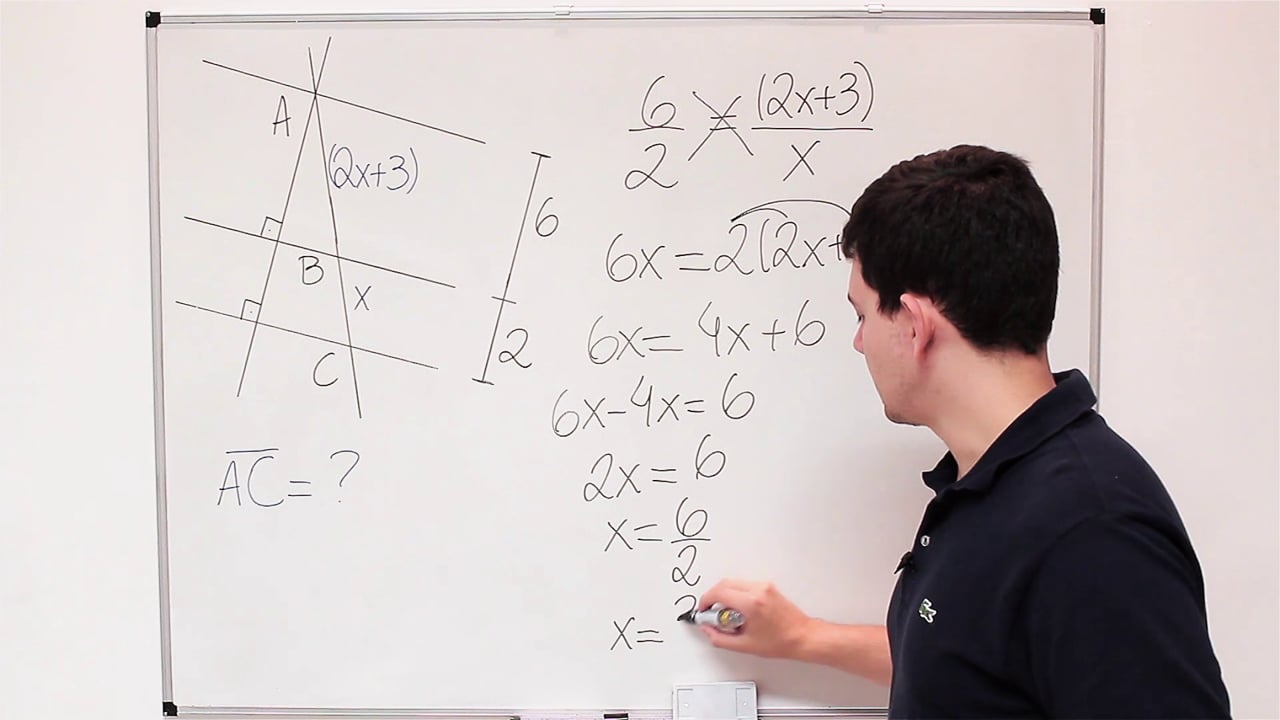 A
(2x+3)
6
B
x
2
C
AC = ?
6/2 = (2x+3)/x
6x = 2(2x+
6x = 4x + 6
6x - 4x = 6
2x = 6
x = 6/2
x =